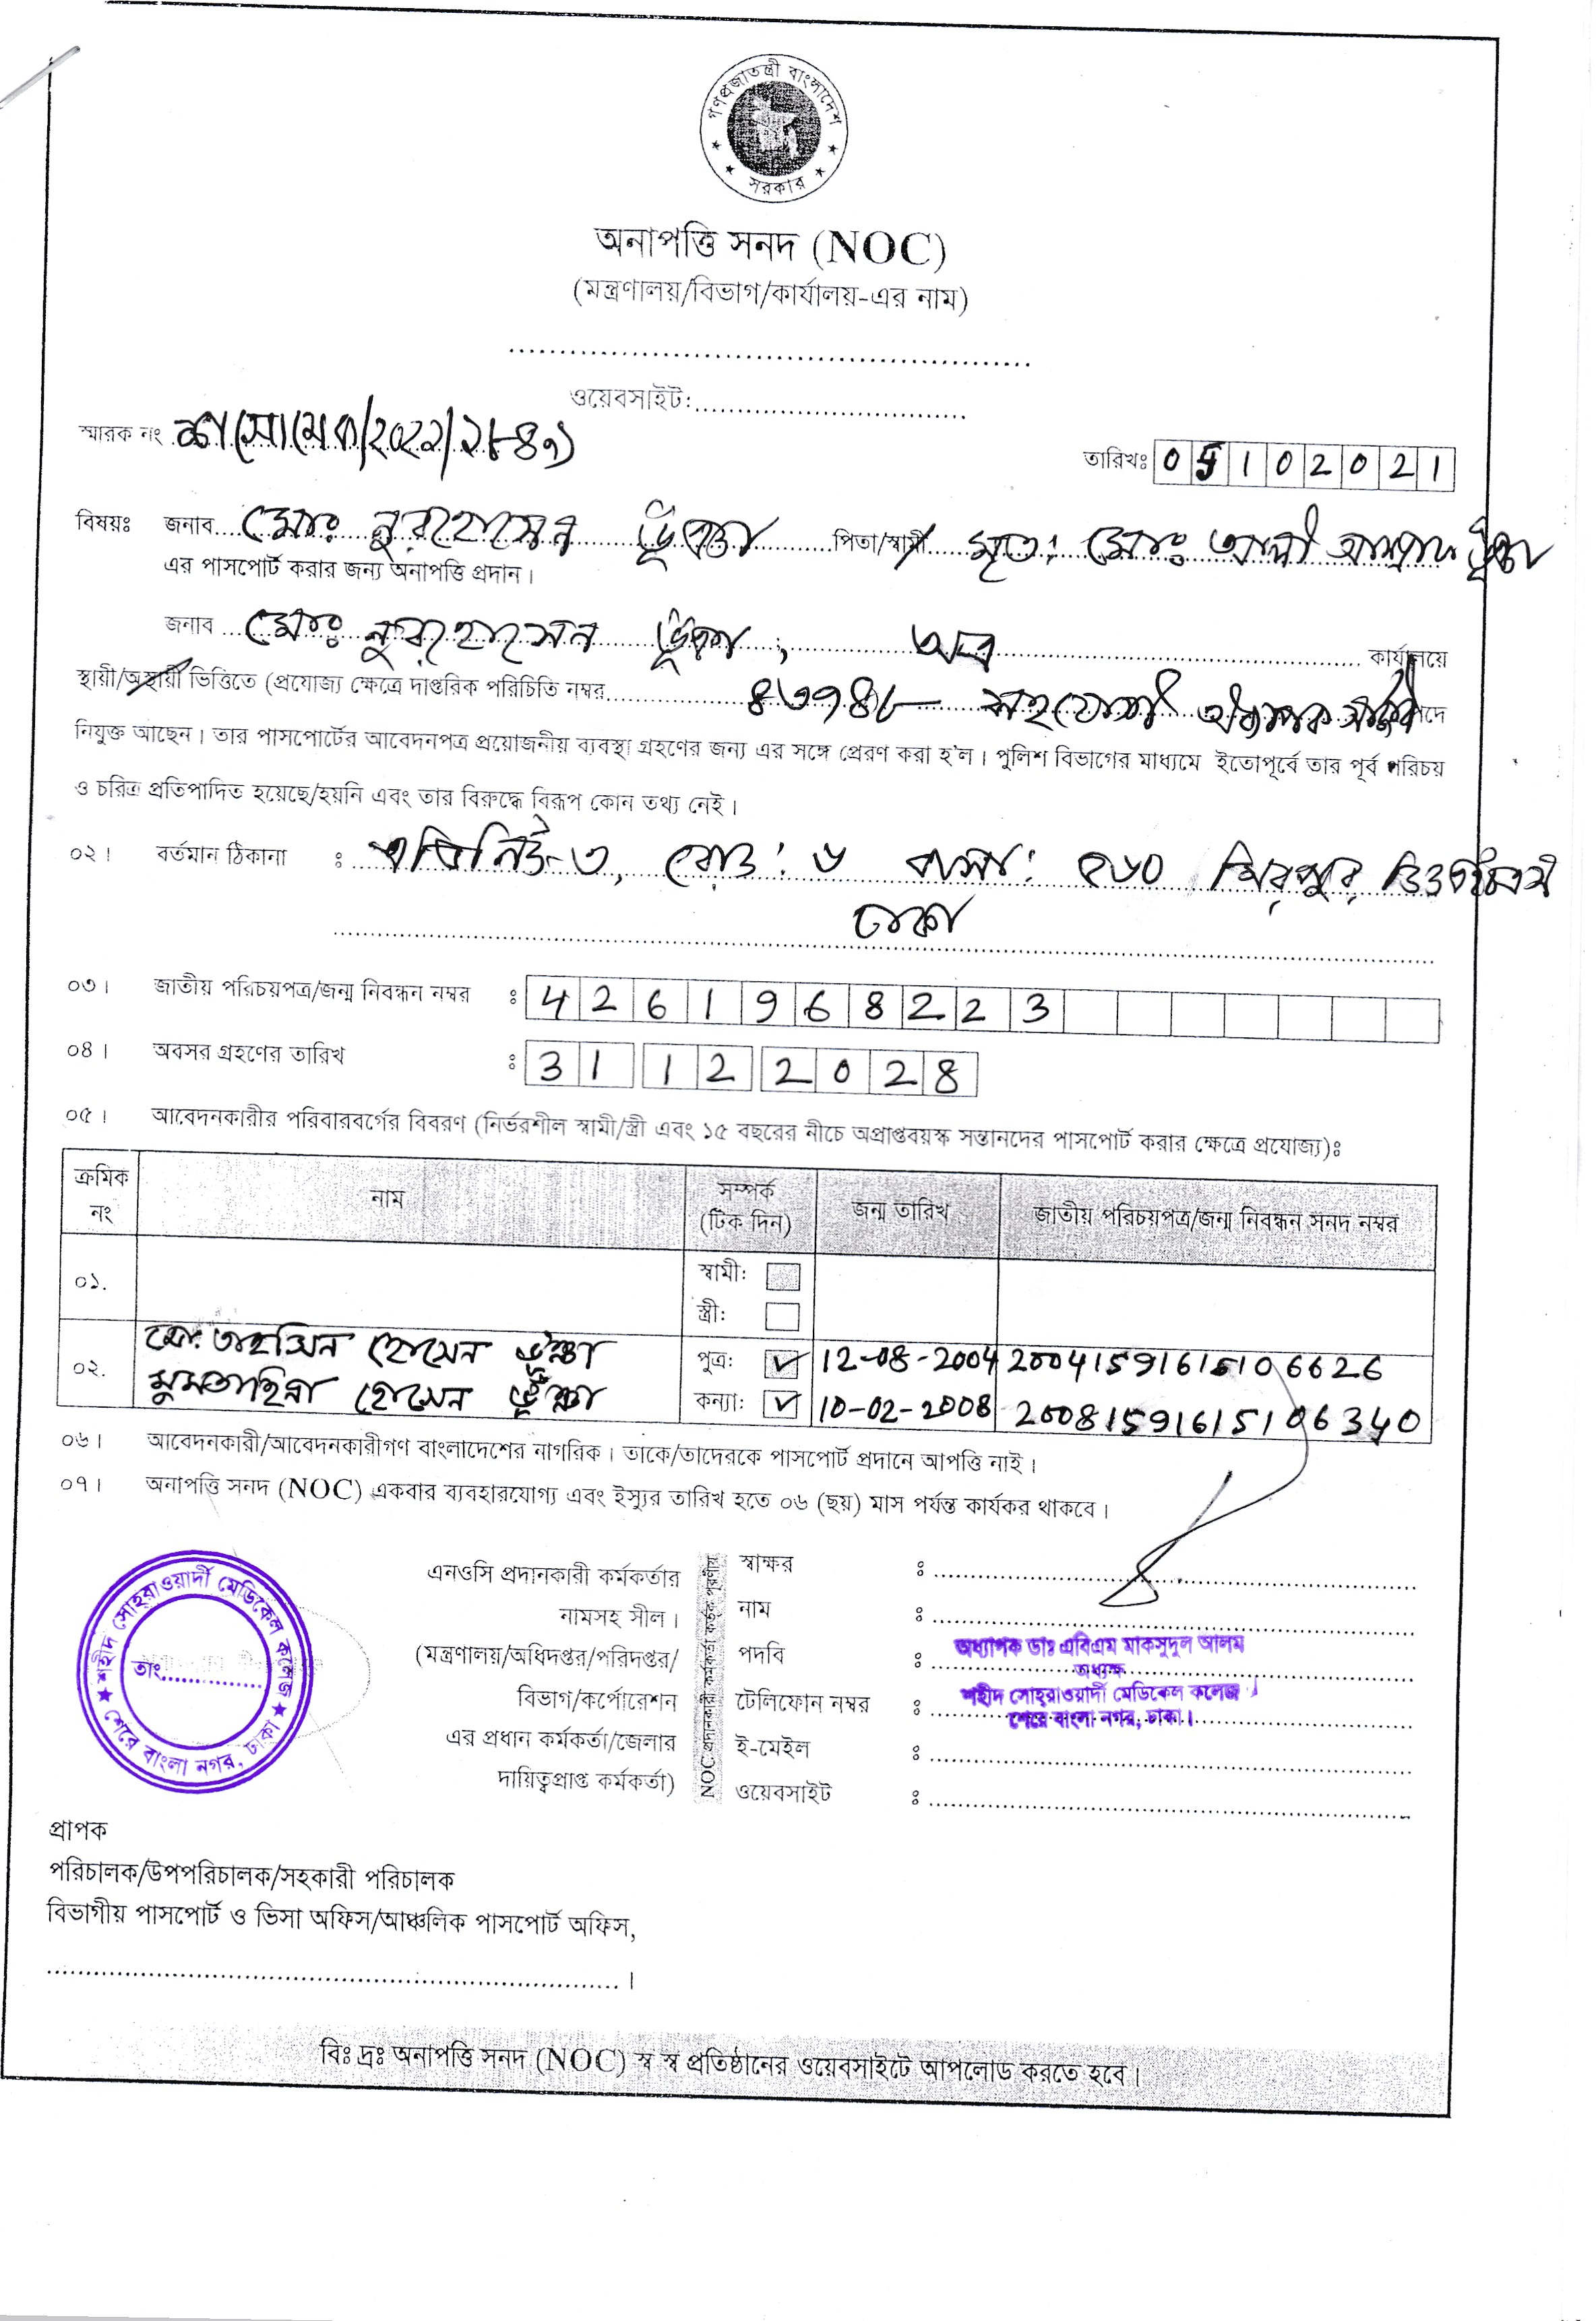 গণপ্রজাতন্ত্রী বাংলাদেশ
সরকার
অনাপত্তি সনদ (NOC)
(মন্ত্রণালয়/বিভাগ/কার্যালয়-এর নাম)
ওয়েবসাইট:
স্মারক নং শসোমেক/২০২১/২৮৪৭১
তারিখঃ 05102021
বিষয়ঃ জনাব মোঃ নুরহোসেন ভূঁঞা পিতা/স্বামী মৃত: মোঃ আলী ভূঁঞা
এর পাসপোর্ট করার জন্য অনাপত্তি প্রদান।
জনাব মোঃ নুরহোসেন ভূঁঞা, অত্র কার্যালয়ে
স্থায়ী/অস্থায়ী ভিত্তিতে (প্রযোজ্য ক্ষেত্রে দাপ্তরিক পরিচিতি নম্বর ৪৩৭৪৮ সহযোগী অধ্যাপক পদে
নিযুক্ত আছেন। তার পাসপোর্টের আবেদনপত্র প্রয়োজনীয় ব্যবস্থা গ্রহণের জন্য এর সঙ্গে প্রেরণ করা হ'ল। পুলিশ বিভাগের মাধ্যমে ইতোপূর্বে তার পূর্ব পরিচয়
ও চরিত্র প্রতিপাদিত হয়েছে/হয়নি এবং তার বিরুদ্ধে বিরূপ কোন তথ্য নেই।
০২। বর্তমান ঠিকানা : এভিনিউ-৩, রোড: ৬ বাসা: ১৬০ মিরপুর ডিওএইচএস
ঢাকা
০৩। জাতীয় পরিচয়পত্র/জন্ম নিবন্ধন নম্বর : 4261968223
০৪। অবসর গ্রহণের তারিখ : 31 12 2028
০৫। আবেদনকারীর পরিবারবর্গের বিবরণ (নির্ভরশীল স্বামী/স্ত্রী এবং ১৫ বছরের নীচে অপ্রাপ্তবয়স্ক সন্তানদের পাসপোর্ট করার ক্ষেত্রে প্রযোজ্য)ঃ
ক্রমিক নং নাম সম্পর্ক (টিক দিন) জন্ম তারিখ জাতীয় পরিচয়পত্র/জন্ম নিবন্ধন সনদ নম্বর
০১. স্বামী:
স্ত্রী:
০২. মো: তাহসিন হোসেন ভূঁঞা পুত্র: ✓ 12-08-2004 20041591615106626
মুমতাহিনা হোসেন ভূঁঞা কন্যা: ✓ 10-02-2008 20081591615106340
০৬। আবেদনকারী/আবেদনকারীগণ বাংলাদেশের নাগরিক। তাকে/তাদেরকে পাসপোর্ট প্রদানে আপত্তি নাই।
০৭। অনাপত্তি সনদ (NOC) একবার ব্যবহারযোগ্য এবং ইস্যুর তারিখ হতে ০৬ (ছয়) মাস পর্যন্ত কার্যকর থাকবে।
শহীদ সোহরাওয়ার্দী মেডিকেল কলেজ
তাং
শেরে বাংলা নগর, ঢাকা
এনওসি প্রদানকারী কর্মকর্তার
নামসহ সীল।
(মন্ত্রণালয়/অধিদপ্তর/পরিদপ্তর/
বিভাগ/কর্পোরেশন
এর প্রধান কর্মকর্তা/জেলার
দায়িত্বপ্রাপ্ত কর্মকর্তা)
NOC প্রদানকারী কর্মকর্তা কর্তৃক পূরণীয়
স্বাক্ষর :
নাম :
পদবি :
টেলিফোন নম্বর :
ই-মেইল :
ওয়েবসাইট :
অধ্যাপক ডাঃ এবিএম মাকসুদুল আলম
অধ্যক্ষ
শহীদ সোহরাওয়ার্দী মেডিকেল কলেজ
শেরে বাংলা নগর, ঢাকা।
প্রাপক
পরিচালক/উপপরিচালক/সহকারী পরিচালক
বিভাগীয় পাসপোর্ট ও ভিসা অফিস/আঞ্চলিক পাসপোর্ট অফিস,
বিঃ দ্রঃ অনাপত্তি সনদ (NOC) স্ব স্ব প্রতিষ্ঠানের ওয়েবসাইটে আপলোড করতে হবে।